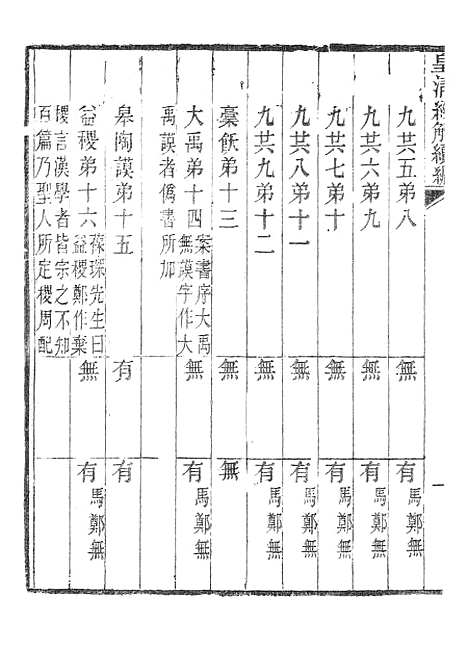 皇清經解續編
一
九共五弟八 無 有馬鄭無
九共六弟九 無 有馬鄭無
九共七弟十 無 有馬鄭無
九共八弟十一 無 有馬鄭無
九共九弟十二 無 有馬鄭無
稾飫弟十三 無 無
大禹弟十四 案書序大禹無謨字作大 無 有馬鄭無
禹謨者僞書所加
皋陶謨弟十五 有 有
益稷弟十六 葆琛先生曰益稷鄭作棄 無 有馬鄭無
稷言漢學者皆宗之不知
百篇乃聖人所定稷周配